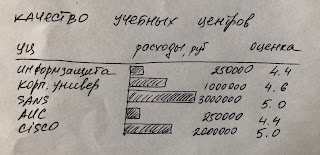 КАЧЕСТВО УЧЕБНЫХ ЦЕНТРОВ
УЦ расходы, руб оценка
ИНФОРМЗАЩИТА 250000 4.4
КОРП. УНИВЕР 1000000 4.6
SANS 3000000 5.0
АИС 250000 4.4
CISCO 2000000 5.0